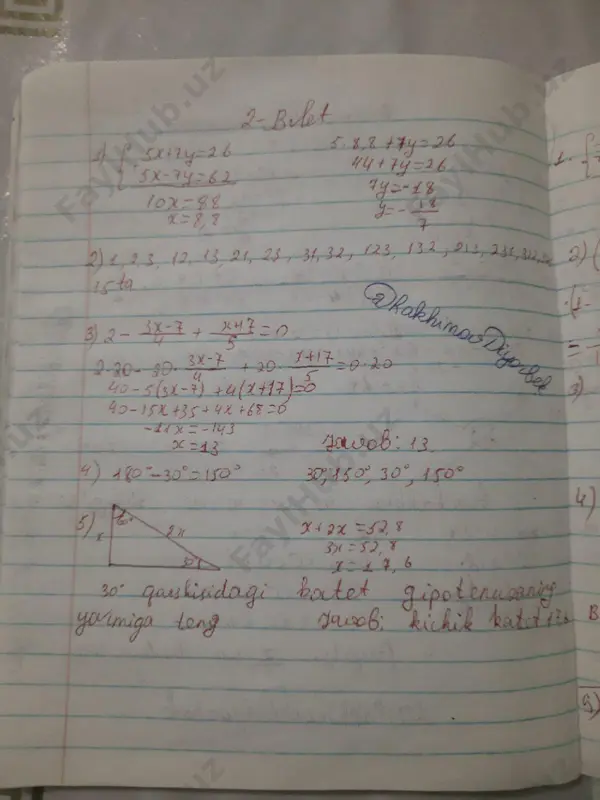 2-Bilet
1) { 5x+7y=26
5x-7y=62
10x=88
x=8,8
5·8,8+7y=26
44+7y=26
7y=-18
y=-18/7
2) 1, 2, 3, 12, 13, 21, 23, 31, 32, 123, 132, 213, 231, 312,
15 ta
@Rakhimov Diyorbek
3) 2 - (3x-7)/4 + (x+17)/5 = 0
2·20-20·(3x-7)/4+20·(x+17)/5=0·20
40-5(3x-7)+4(x+17)=0
40-15x+35+4x+68=0
-11x=-143
x=13
Javob: 13.
4) 180°-30°=150° 30°, 150°, 30°, 150°
5) x 60° 2x 30°
x+2x=52,8
3x=52,8
x=17,6
30° qarshisidagi katet gipotenuzaning
yarmiga teng Javob; kichik katet 17,6
FaylHub.uz
FaylHub.uz
FaylHub.uz
FaylHub.uz
1. {
2) (
3)
4)
B
5)